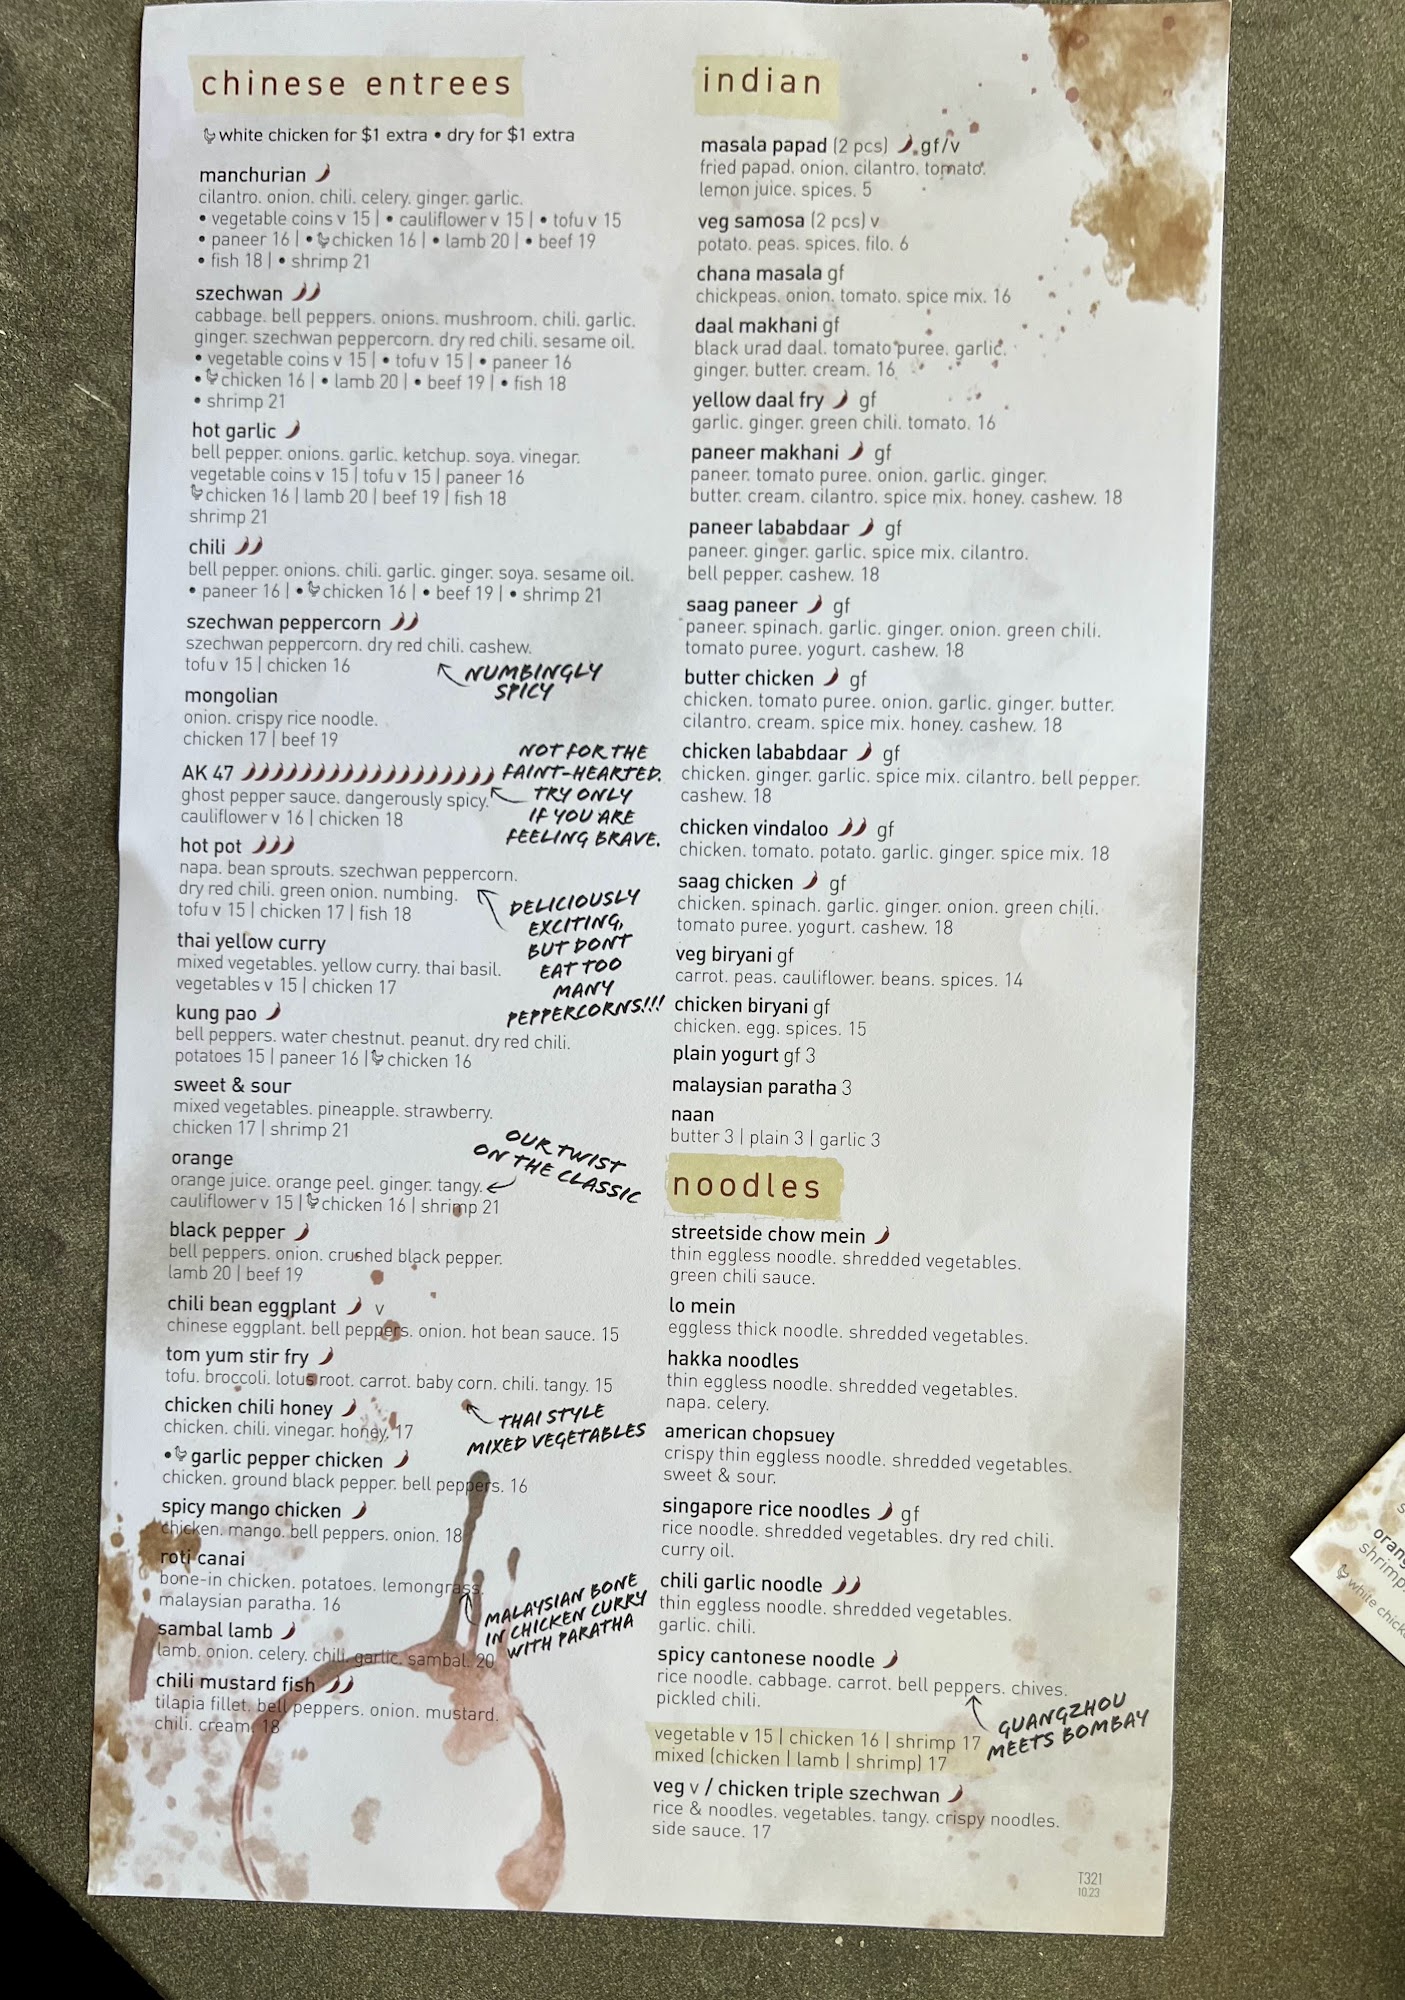 chinese entrees
white chicken for $1 extra • dry for $1 extra
manchurian
cilantro. onion. chili. celery. ginger. garlic.
• vegetable coins v 15 | • cauliflower v 15 | • tofu v 15
• paneer 16 | • chicken 16 | • lamb 20 | • beef 19
• fish 18 | • shrimp 21
szechwan
cabbage. bell peppers. onions. mushroom. chili. garlic.
ginger. szechwan peppercorn. dry red chili. sesame oil.
• vegetable coins v 15 | • tofu v 15 | • paneer 16
• chicken 16 | • lamb 20 | • beef 19 | • fish 18
• shrimp 21
hot garlic
bell pepper. onions. garlic. ketchup. soya. vinegar.
vegetable coins v 15 | tofu v 15 | paneer 16
chicken 16 | lamb 20 | beef 19 | fish 18
shrimp 21
chili
bell pepper. onions. chili. garlic. ginger. soya. sesame oil.
• paneer 16 | • chicken 16 | • beef 19 | • shrimp 21
szechwan peppercorn
szechwan peppercorn. dry red chili. cashew.
tofu v 15 | chicken 16
NUMBINGLY
SPICY
mongolian
onion. crispy rice noodle.
chicken 17 | beef 19
AK 47
ghost pepper sauce. dangerously spicy.
cauliflower v 16 | chicken 18
NOT FOR THE
FAINT-HEARTED.
TRY ONLY
IF YOU ARE
FEELING BRAVE.
hot pot
napa. bean sprouts. szechwan peppercorn.
dry red chili. green onion. numbing.
tofu v 15 | chicken 17 | fish 18
DELICIOUSLY
EXCITING,
BUT DONT
EAT TOO
MANY
PEPPERCORNS!!!
thai yellow curry
mixed vegetables. yellow curry. thai basil.
vegetables v 15 | chicken 17
kung pao
bell peppers. water chestnut. peanut. dry red chili.
potatoes 15 | paneer 16 | chicken 16
sweet & sour
mixed vegetables. pineapple. strawberry.
chicken 17 | shrimp 21
orange
orange juice. orange peel. ginger. tangy.
cauliflower v 15 | chicken 16 | shrimp 21
OUR TWIST
ON THE CLASSIC
black pepper
bell peppers. onion. crushed black pepper.
lamb 20 | beef 19
chili bean eggplant v
chinese eggplant. bell peppers. onion. hot bean sauce. 15
tom yum stir fry
tofu. broccoli. lotus root. carrot. baby corn. chili. tangy. 15
THAI STYLE
MIXED VEGETABLES
chicken chili honey
chicken. chili. vinegar. honey. 17
• garlic pepper chicken
chicken. ground black pepper. bell peppers. 16
spicy mango chicken
chicken. mango. bell peppers. onion. 18
roti canai
bone-in chicken. potatoes. lemongrass.
malaysian paratha. 16
MALAYSIAN BONE
IN CHICKEN CURRY
WITH PARATHA
sambal lamb
lamb. onion. celery. chili. garlic. sambal. 20
chili mustard fish
tilapia fillet. bell peppers. onion. mustard.
chili. cream. 18
indian
masala papad (2 pcs) gf/v
fried papad. onion. cilantro. tomato.
lemon juice. spices. 5
veg samosa (2 pcs) v
potato. peas. spices. filo. 6
chana masala gf
chickpeas. onion. tomato. spice mix. 16
daal makhani gf
black urad daal. tomato puree. garlic.
ginger. butter. cream. 16
yellow daal fry gf
garlic. ginger. green chili. tomato. 16
paneer makhani gf
paneer. tomato puree. onion. garlic. ginger.
butter. cream. cilantro. spice mix. honey. cashew. 18
paneer lababdaar gf
paneer. ginger. garlic. spice mix. cilantro.
bell pepper. cashew. 18
saag paneer gf
paneer. spinach. garlic. ginger. onion. green chili.
tomato puree. yogurt. cashew. 18
butter chicken gf
chicken. tomato puree. onion. garlic. ginger. butter.
cilantro. cream. spice mix. honey. cashew. 18
chicken lababdaar gf
chicken. ginger. garlic. spice mix. cilantro. bell pepper.
cashew. 18
chicken vindaloo gf
chicken. tomato. potato. garlic. ginger. spice mix. 18
saag chicken gf
chicken. spinach. garlic. ginger. onion. green chili.
tomato puree. yogurt. cashew. 18
veg biryani gf
carrot. peas. cauliflower. beans. spices. 14
chicken biryani gf
chicken. egg. spices. 15
plain yogurt gf 3
malaysian paratha 3
naan
butter 3 | plain 3 | garlic 3
noodles
streetside chow mein
thin eggless noodle. shredded vegetables.
green chili sauce.
lo mein
eggless thick noodle. shredded vegetables.
hakka noodles
thin eggless noodle. shredded vegetables.
napa. celery.
american chopsuey
crispy thin eggless noodle. shredded vegetables.
sweet & sour.
singapore rice noodles gf
rice noodle. shredded vegetables. dry red chili.
curry oil.
chili garlic noodle
thin eggless noodle. shredded vegetables.
garlic. chili.
spicy cantonese noodle
rice noodle. cabbage. carrot. bell peppers. chives.
pickled chili.
GUANGZHOU
MEETS BOMBAY
vegetable v 15 | chicken 16 | shrimp 17
mixed (chicken | lamb | shrimp) 17
veg v / chicken triple szechwan
rice & noodles. vegetables. tangy. crispy noodles.
side sauce. 17
T321
10.23
orang
shrimp
white chick